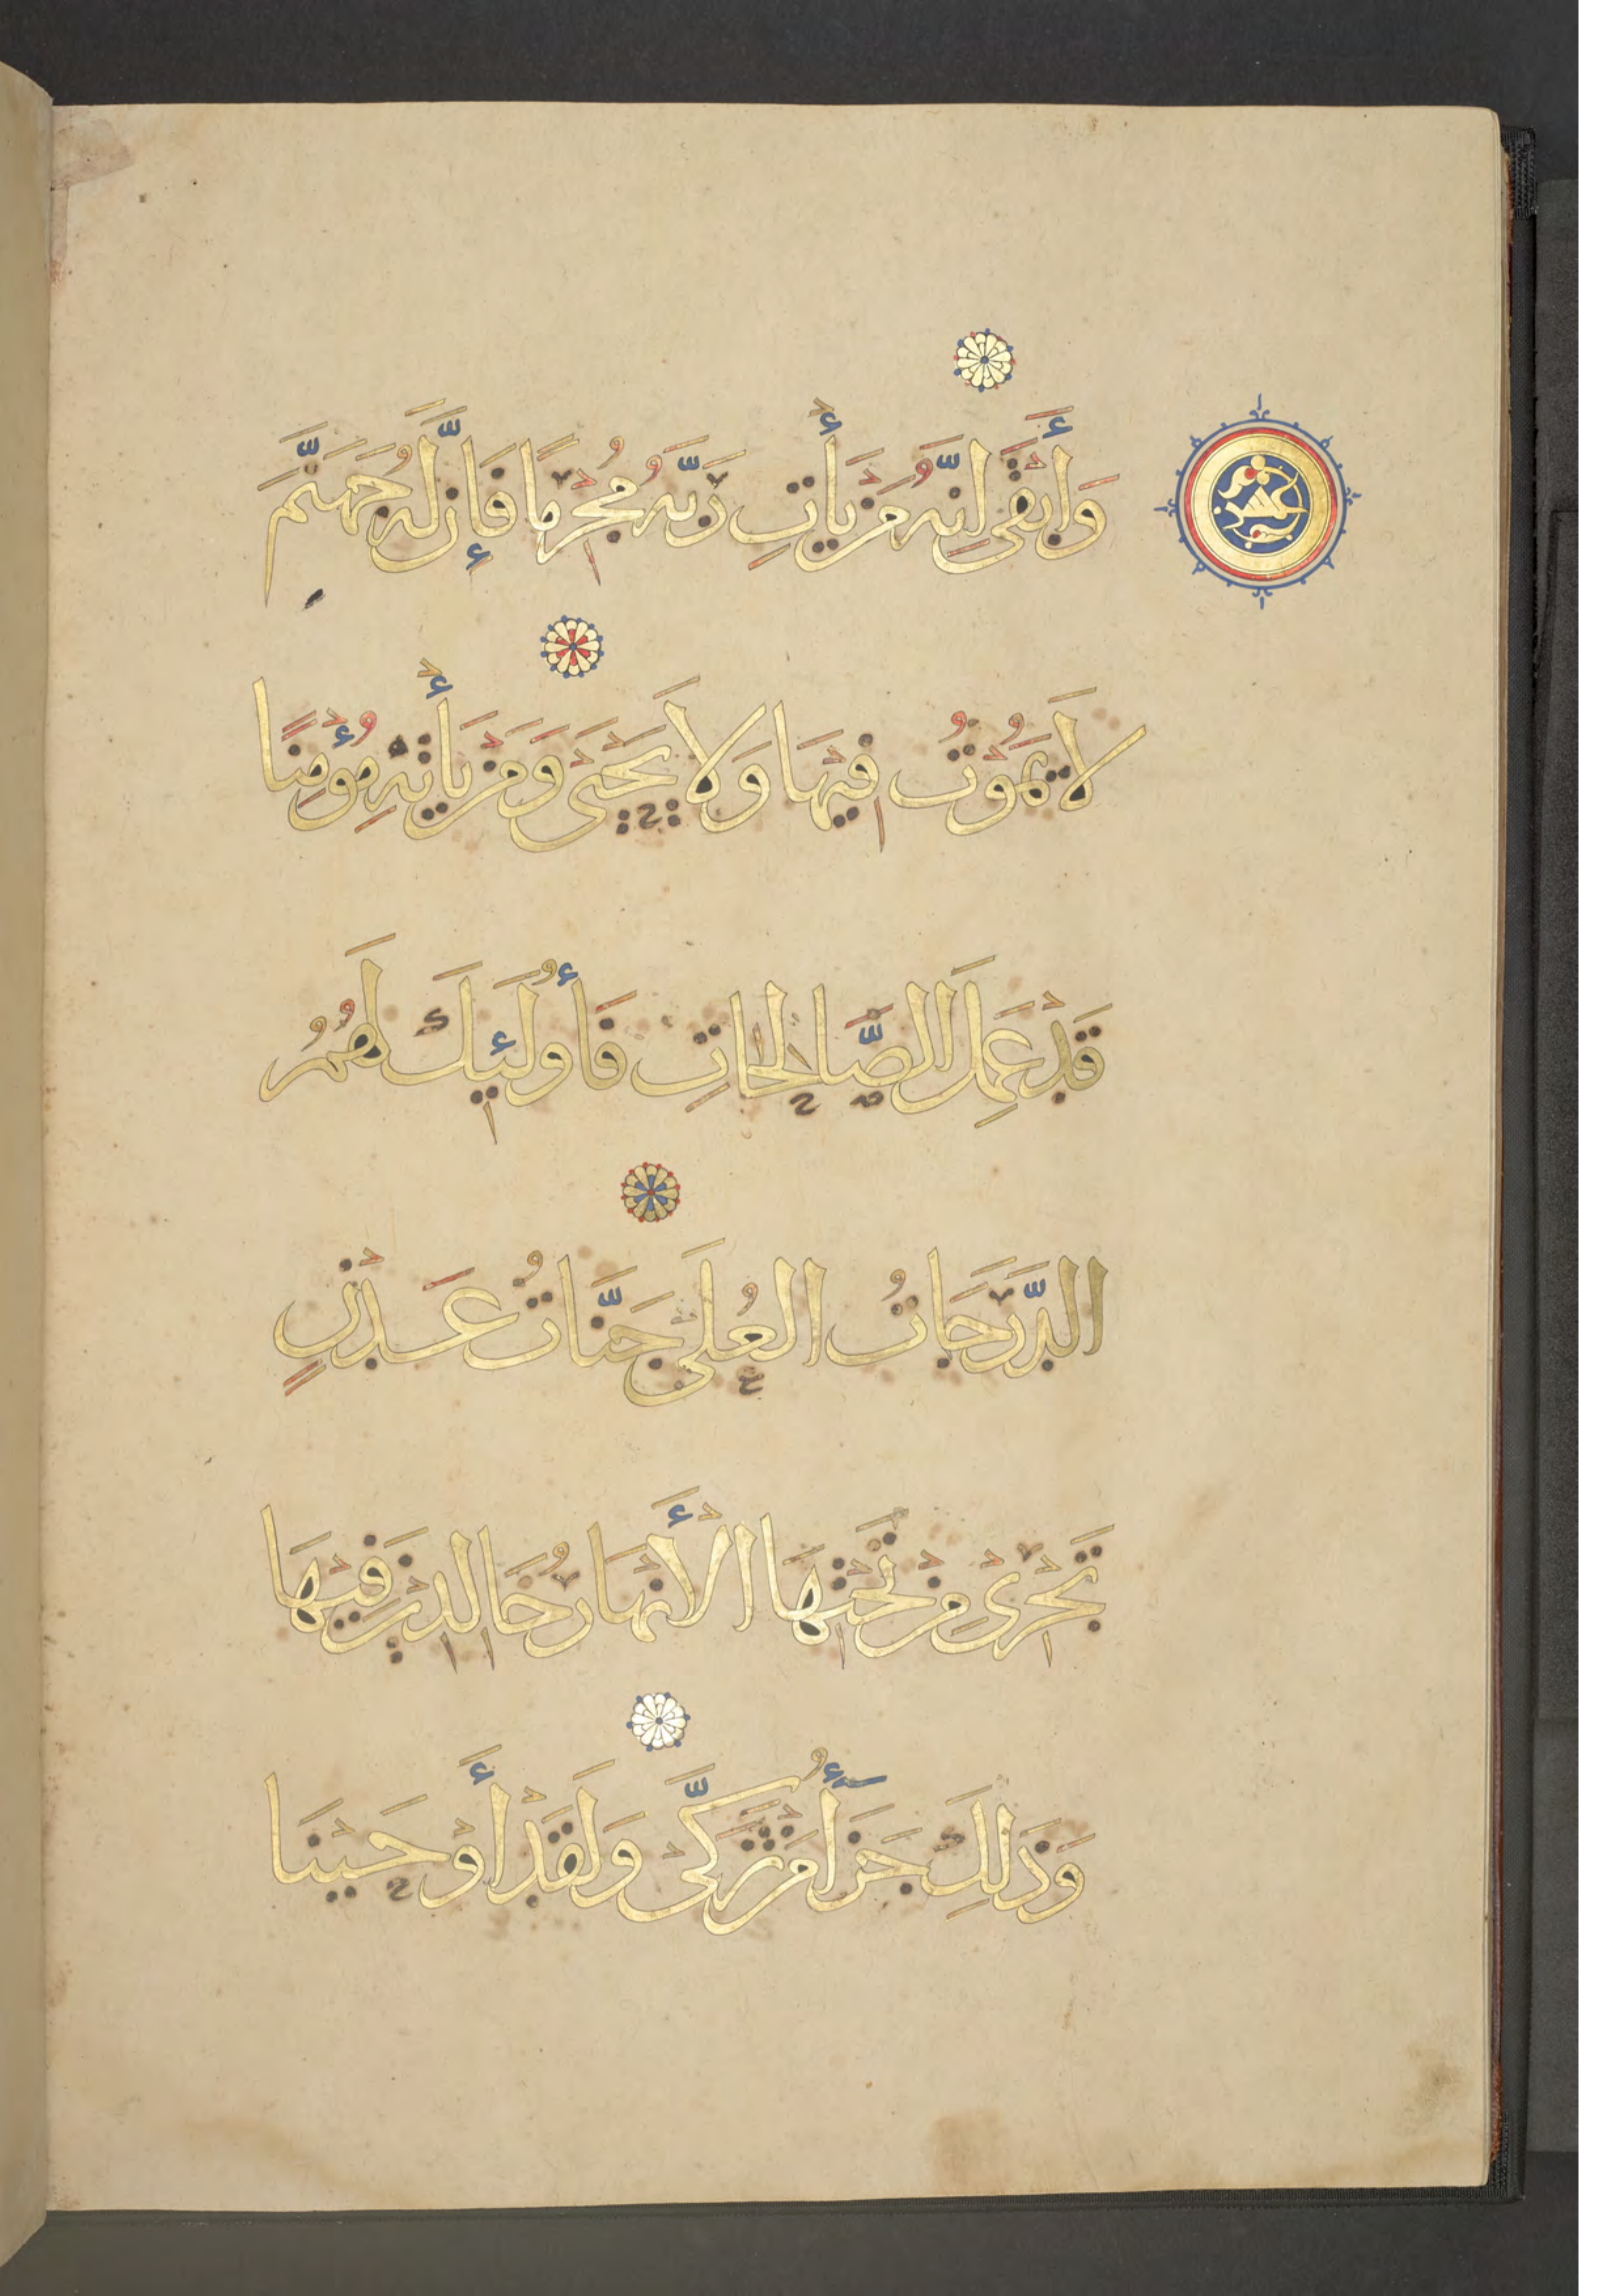 وَأَبْقَى إِنَّهُ مَنْ يَأْتِ رَبَّهُ مُجْرِمًا فَإِنَّ لَهُ جَهَنَّمَ
لَا يَمُوتُ فِيهَا وَلَا يَحْيَى وَمَنْ يَأْتِهِ مُؤْمِنًا
قَدْ عَمِلَ الصَّالِحَاتِ فَأُولَئِكَ لَهُمُ
الدَّرَجَاتُ الْعُلَى جَنَّاتُ عَدْنٍ
تَجْرِي مِنْ تَحْتِهَا الْأَنْهَارُ خَالِدِينَ فِيهَا
وَذَلِكَ جَزَآءُ مَنْ تَزَكَّى وَلَقَدْ أَوْحَيْنَا